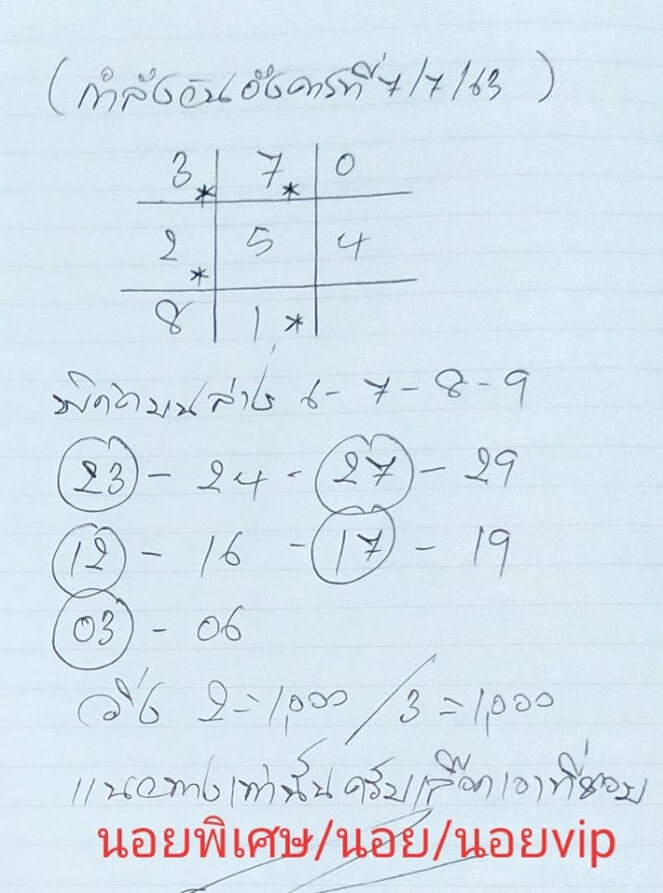 (กำลังวันอังคารที่ 7/7/63)
3* 7* 0
2* 5 4
8 1*
พิกัดบนล่าง 6-7-8-9
23 - 24 - 27 - 29
12 - 16 - 17 - 19
03 - 06
วิ่ง 2=1,000 / 3=1,000
แนวทางเท่านั้นครับเลือกเอาที่ชอบ
นอยพิเศษ/นอย/นอยvip